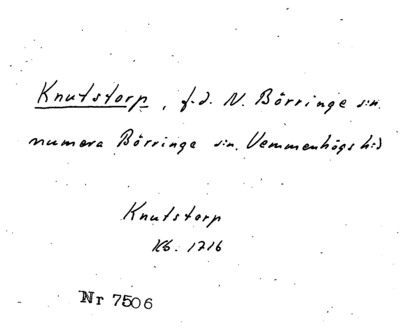 Knutstorp, f.d. N. Börringe s:n.
numera Börringe s:n. Vemmenhögs h:d
Knutstorp
Kb. 1716
Nr 7506